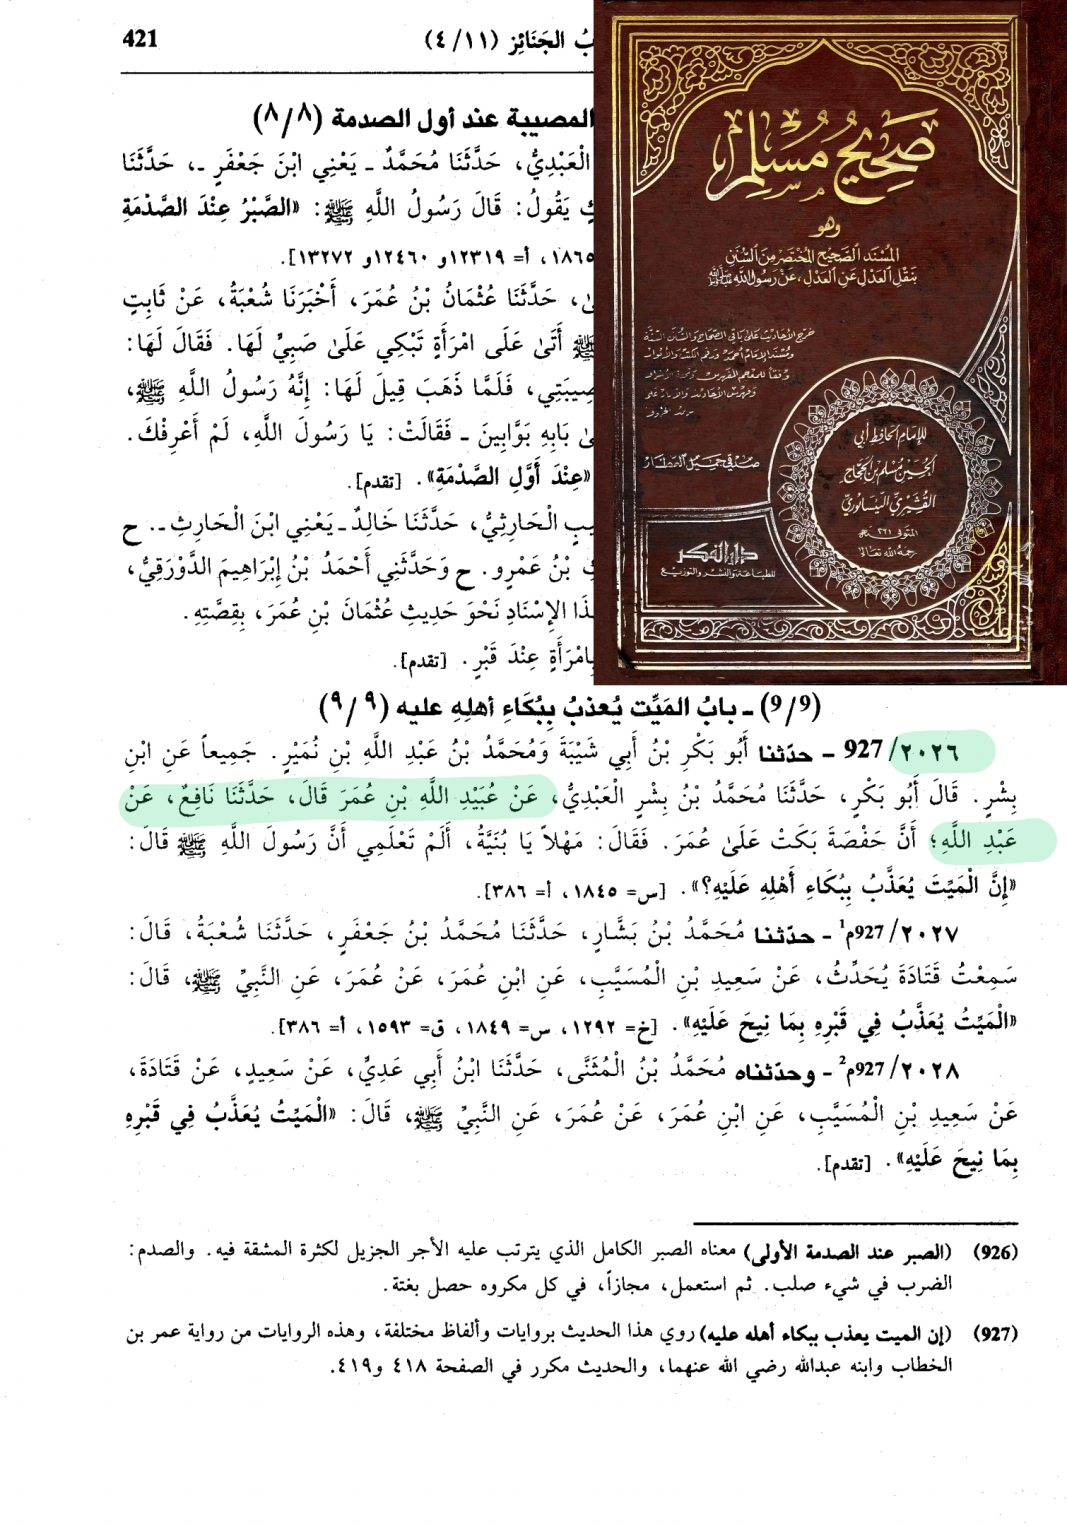 421
بُ الجَنَائِز (٤/١١)
المصيبة عند أول الصدمة (٨/٨)
الْعَبْدِيُّ، حَدَّثَنَا مُحَمَّدٌ ـ يَعْنِي ابْنَ جَعْفَرٍ ـ، حَدَّثَنَا
يَقُولُ: قَالَ رَسُولُ اللَّهِ ﷺ: «الصَّبْرُ عِنْدَ الصَّدْمَةِ
١٨٦٥، أ= ١٢٣١٩و ١٢٤٦٠و ١٣٢٧٢].
حَدَّثَنَا عُثْمَانُ بْنُ عُمَرَ، أَخْبَرَنَا شُعْبَةُ، عَنْ ثَابِتٍ
ﷺ أَتَىٰ عَلَى امْرَأَةٍ تَبْكِي عَلَىٰ صَبِيٍّ لَهَا. فَقَالَ لَهَا:
صِيبَتِي، فَلَمَّا ذَهَبَ قِيلَ لَهَا: إِنَّهُ رَسُولُ اللَّهِ ﷺ،
بَابِهِ بَوَّابِينَ ـ فَقَالَتْ: يَا رَسُولَ اللَّهِ، لَمْ أَعْرِفْكَ.
«عِنْدَ أَوَّلِ الصَّدْمَةِ». [تقدم].
يبٍ الْحَارِثِيُّ، حَدَّثَنَا خَالِدٌ ـ يَعْنِي ابْنَ الْحَارِثِ ـ. ح
بْنُ عَمْرٍو. ح وَحَدَّثَنِي أَحْمَدُ بْنُ إِبْرَاهِيمَ الدَّوْرَقِيُّ،
ذَا الإِسْنَادِ نَحْوَ حَدِيثِ عُثْمَانَ بْنِ عُمَرَ، بِقِصَّتِهِ.
بِامْرَأَةٍ عِنْدَ قَبْرٍ. [تقدم].
صحيح مسلم
وهو
المسند الصحيح المختصر من السنن
بنقل العدل عن العدل، عن رسول الله ﷺ
خرج الأحاديث على باقي الصحاح والسنن الستة
صدقي جميل العطار
للإمام الحافظ أبي
الحسين مسلم بن الحجاج
القشيري النيسابوري
المتوفى ٢٦١ هـ
رحمه الله تعالى
دار الفكر
للطباعة والنشر والتوزيع
(9/9) ـ بابُ المَيِّت يُعذبُ بِبُكَاءِ أهلِهِ عليه (٩/٩)
٢٠٢٦/ 927 ـ حدّثنا أَبُو بَكْرِ بْنُ أَبِي شَيْبَةَ وَمُحَمَّدُ بْنُ عَبْدِ اللَّهِ بْنِ نُمَيْرٍ. جَمِيعاً عَنِ ابْنِ
بِشْرٍ. قَالَ أَبُو بَكْرٍ، حَدَّثَنَا مُحَمَّدُ بْنُ بِشْرٍ الْعَبْدِيُّ، عَنْ عُبَيْدِ اللَّهِ بْنِ عُمَرَ قَالَ، حَدَّثَنَا نَافِعٌ، عَنْ
عَبْدِ اللَّهِ؛ أَنَّ حَفْصَةَ بَكَتْ عَلَىٰ عُمَرَ. فَقَالَ: مَهْلاً يَا بُنَيَّةُ، أَلَمْ تَعْلَمِي أَنَّ رَسُولَ اللَّهِ ﷺ قَالَ:
«إِنَّ الْمَيِّتَ يُعَذَّبُ بِبُكَاءِ أَهْلِهِ عَلَيْهِ؟». [س= ١٨٤٥، أ= ٣٨٦].
٢٠٢٧/ 927م¹ ـ حدّثنا مُحَمَّدُ بْنُ بَشَّارٍ، حَدَّثَنَا مُحَمَّدُ بْنُ جَعْفَرٍ، حَدَّثَنَا شُعْبَةُ، قَالَ:
سَمِعْتُ قَتَادَةَ يُحَدِّثُ، عَنْ سَعِيدِ بْنِ الْمُسَيَّبِ، عَنِ ابْنِ عُمَرَ، عَنْ عُمَرَ، عَنِ النَّبِيِّ ﷺ، قَالَ:
«الْمَيِّتُ يُعَذَّبُ فِي قَبْرِهِ بِمَا نِيحَ عَلَيْهِ». [خ= ١٢٩٢، س= ١٨٤٩، ق= ١٥٩٣، أ= ٣٨٦].
٢٠٢٨/ 927م² ـ وحدّثناه مُحَمَّدُ بْنُ الْمُثَنَّى، حَدَّثَنَا ابْنُ أَبِي عَدِيٍّ، عَنْ سَعِيدٍ، عَنْ قَتَادَةَ،
عَنْ سَعِيدِ بْنِ الْمُسَيَّبِ، عَنِ ابْنِ عُمَرَ، عَنْ عُمَرَ، عَنِ النَّبِيِّ ﷺ، قَالَ: «الْمَيِّتُ يُعَذَّبُ فِي قَبْرِهِ
بِمَا نِيحَ عَلَيْهِ». [تقدم].
(926) (الصبر عند الصدمة الأولى) معناه الصبر الكامل الذي يترتب عليه الأجر الجزيل لكثرة المشقة فيه. والصدم:
الضرب في شيء صلب. ثم استعمل، مجازاً، في كل مكروه حصل بغتة.
(927) (إن الميت يعذب ببكاء أهله عليه) روي هذا الحديث بروايات وألفاظ مختلفة، وهذه الروايات من رواية عمر بن
الخطاب وابنه عبدالله رضي الله عنهما، والحديث مكرر في الصفحة ٤١٨ و٤١٩.